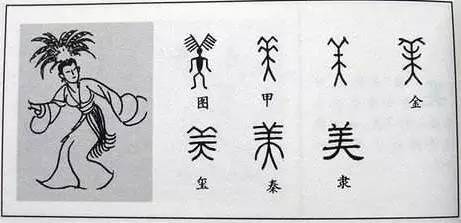 图 甲 金
美
玺 秦 隶